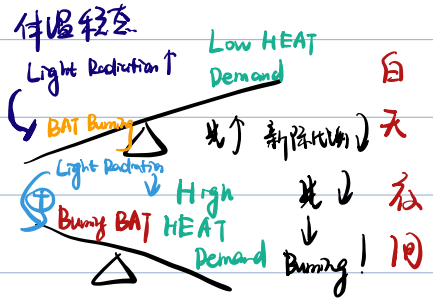 体温稳态
Light Radiation ↑
Low HEAT
Demand
BAT Burning
光↑ 新陈代谢↓
白天
Light Radiation ↓
⊕
High
HEAT
Demand
Burning BAT
光↓
↓
Burning!
夜间